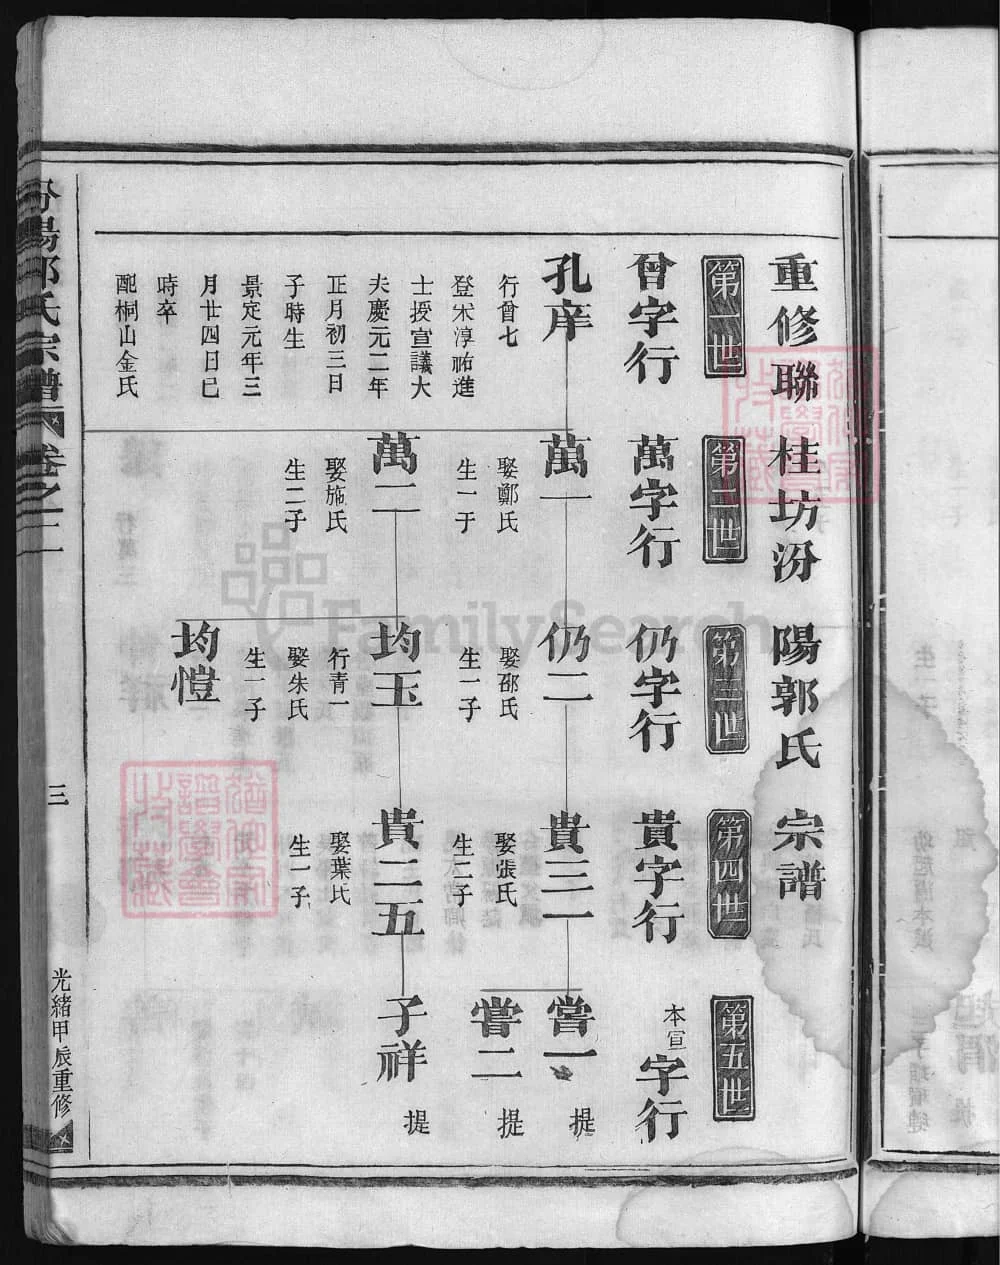 重修聯桂坊汾陽郭氏宗譜
第一世
第二世
第三世
第四世
第五世
曾字行
萬字行
仍字行
貴字行
本宣字行
孔庠
行曾七
登宋淳祐進
士授宣議大
夫慶元二年
正月初三日
子時生
景定元年三
月廿四日巳
時卒
配桐山金氏
萬一
娶鄭氏
生一子
萬二
娶施氏
生二子
仍二
娶邵氏
生一子
均玉
行青一
娶朱氏
生一子
均愷
貴三一
娶張氏
生二子
貴二五
娶葉氏
生一子
嘗一
提
嘗二
提
子祥
提
汾陽郭氏宗譜
卷之二
三
光緒甲辰重修
FamilySearch